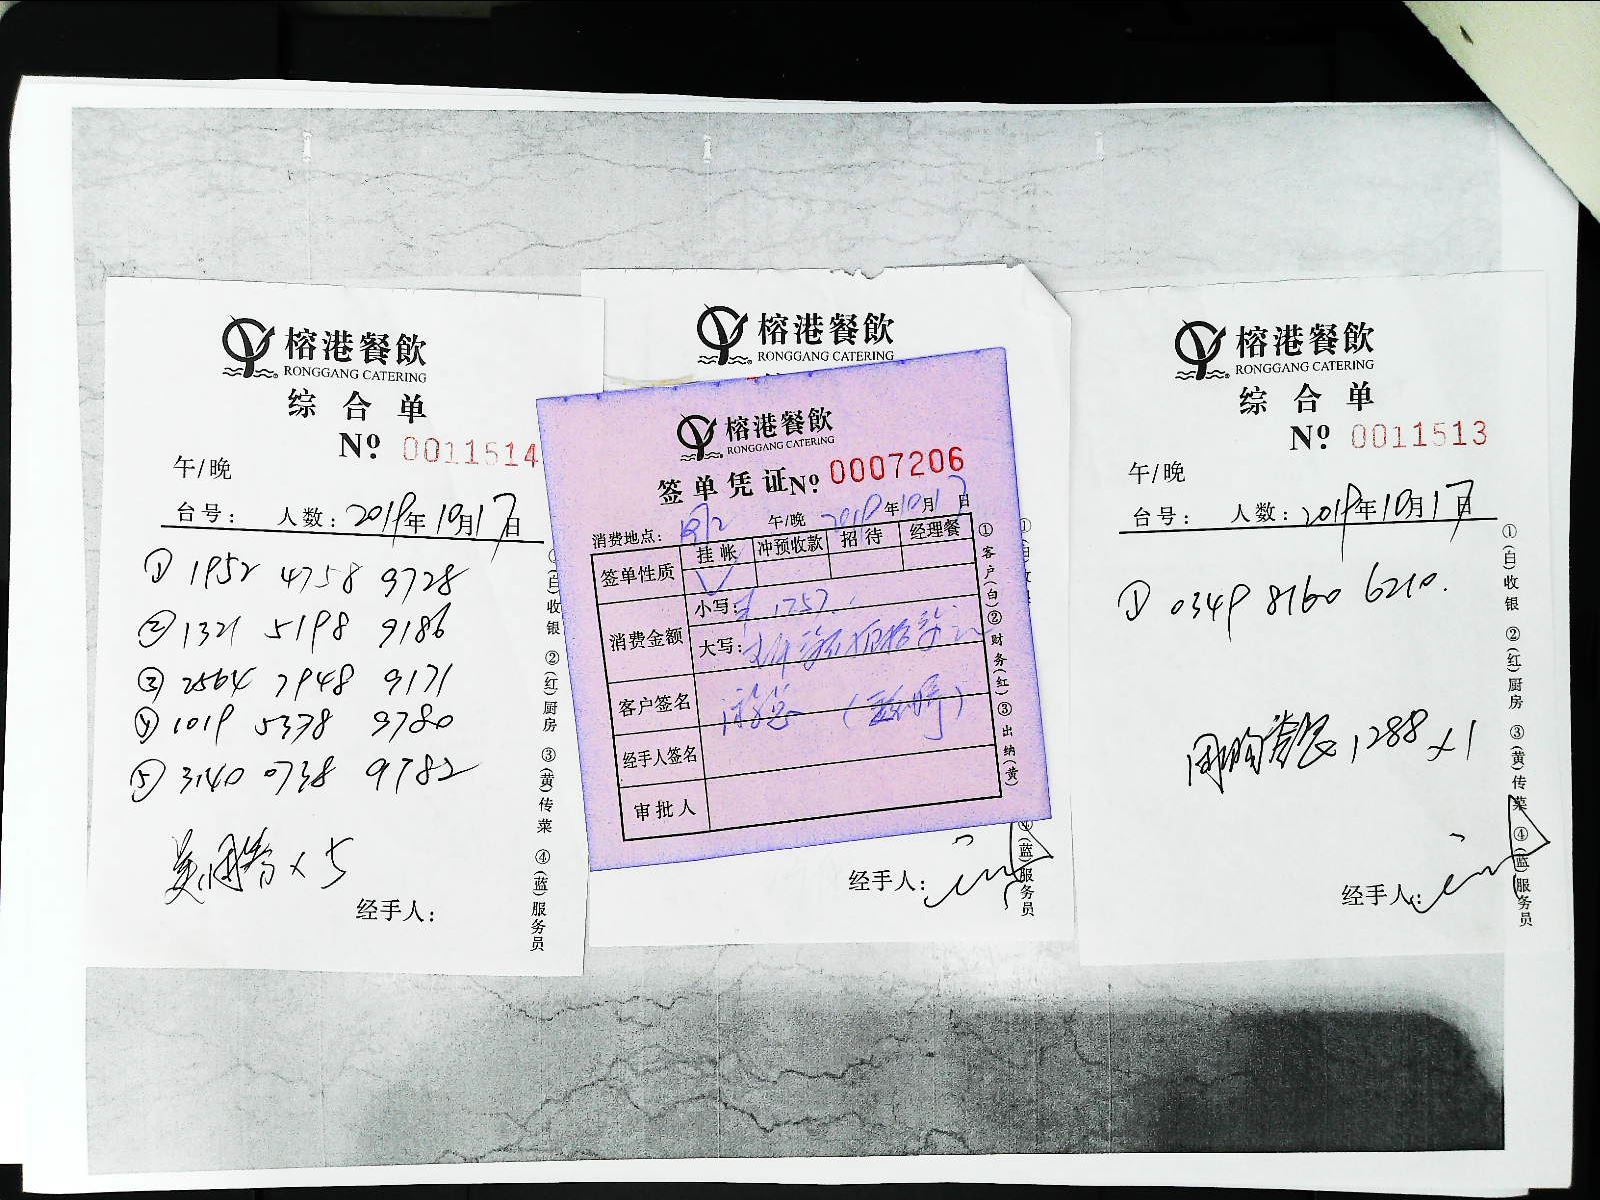 榕港餐飲
RONGGANG CATERING
综合单
№ 0011514
午/晚
台号: 人数: 2019年10月17日
① 1952 4758 9728
② 1321 5198 9186
③ 2564 7948 9171
④ 1019 5378 9780
⑤ 3140 0738 9782
美团券 x 5
经手人:
①(白)收银 ②(红)厨房 ③(黄)传菜 ④(蓝)服务员
榕港餐飲
RONGGANG CATERING
经手人:
④(蓝)服务员
榕港餐飲
RONGGANG CATERING
签单凭证 № 0007206
消费地点: 午/晚 2019年10月17日
签单性质 挂帐 冲预收款 招待 经理餐
√
消费金额 小写: ¥1757
大写:
客户签名
经手人签名
审批人
①客户(白)②财务(红)③出纳(黄)
榕港餐飲
RONGGANG CATERING
综合单
№ 0011513
午/晚
台号: 人数: 2019年10月17日
① 0349 8160 6210.
1288 x 1
经手人:
①(白)收银 ②(红)厨房 ③(黄)传菜 ④(蓝)服务员